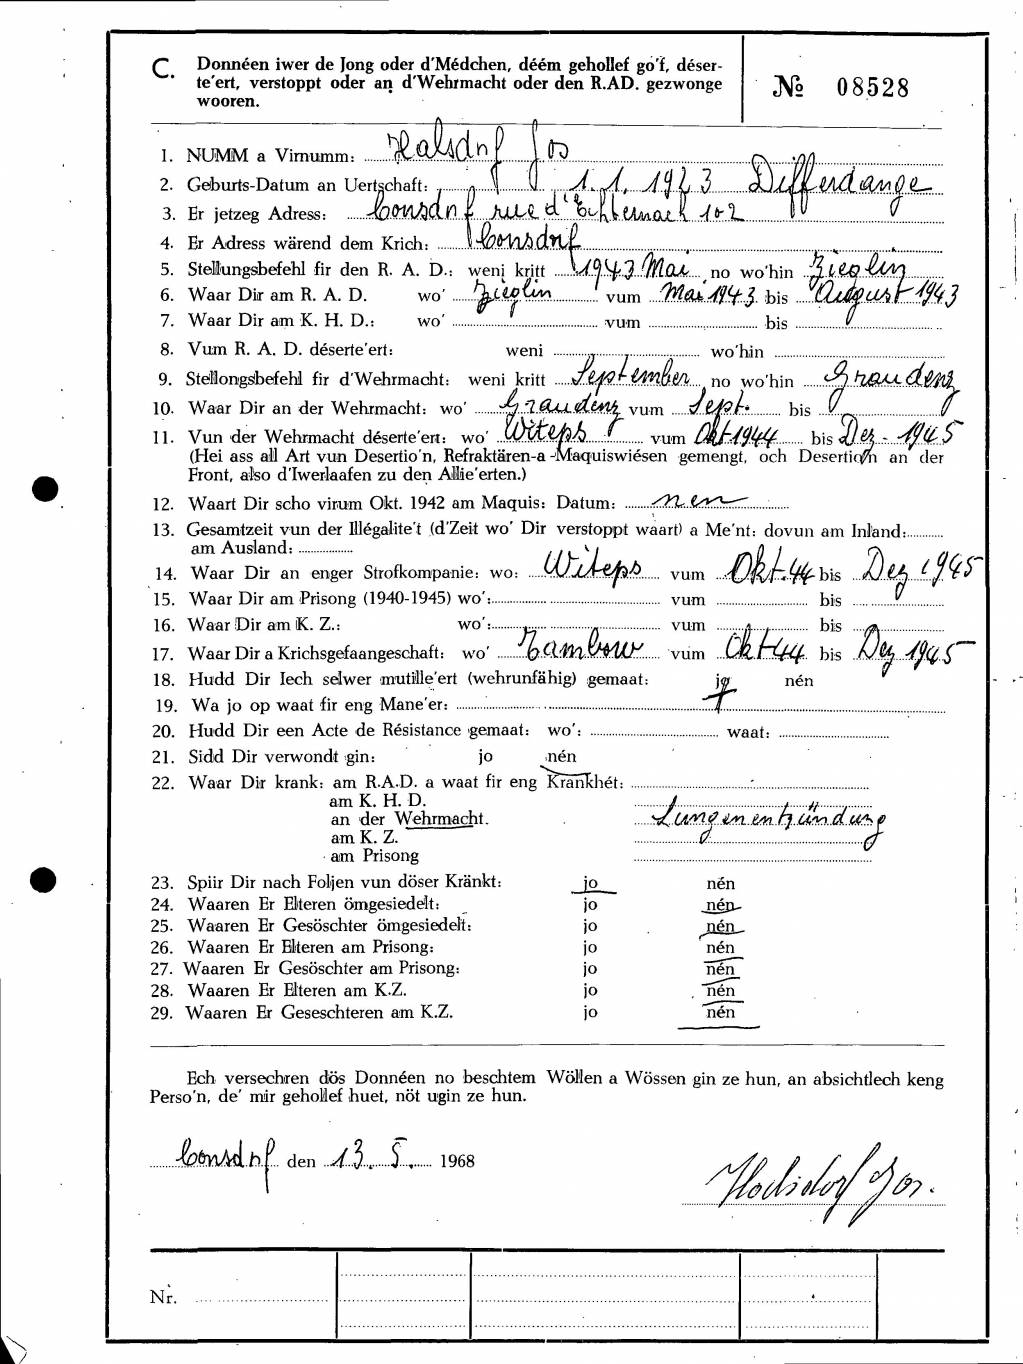 C. Donnéen iwer de Jong oder d'Médchen, déém gehollef go'f, déser-
te'ert, verstoppt oder an d'Wehrmacht oder den R.AD. gezwonge
wooren.
№ 08528
1. NUMM a Virnumm: Halsdorf Jos
2. Geburts-Datum an Uertschaft: 1.1.1923 Differdange
3. Er jetzeg Adress: Consdorf rue d'Echternach 102
4. Er Adress wärend dem Krich: Consdorf
5. Stellungsbefehl fir den R. A. D.: weni kritt 1943 Mai no wo'hin Zieglin
6. Waar Dir am R. A. D. wo' Zieglin vum Mai 1943 bis August 1943
7. Waar Dir am K. H. D.: wo' vum bis
8. Vum R. A. D. déserte'ert: weni wo'hin
9. Stellongsbefehl fir d'Wehrmacht: weni kritt September no wo'hin Graudenz
10. Waar Dir an der Wehrmacht: wo' Graudenz vum Sept. bis
11. Vun der Wehrmacht déserte'ert: wo' Witeps vum Okt 1944 bis Dez - 1945
(Hei ass all Art vun Desertio'n, Refraktären-a -Maquiswiésen gemengt, och Desertio'n an der
Front, also d'Iwerlaafen zu den Allie'erten.)
12. Waart Dir scho virum Okt. 1942 am Maquis: Datum: nen
13. Gesamtzeit vun der Illégalite't (d'Zeit wo' Dir verstoppt waart) a Me'nt: dovun am Inland:
am Ausland:
14. Waar Dir an enger Strofkompanie: wo: Witeps vum Okt. 44 bis Dez 1945
15. Waar Dir am Prisong (1940-1945) wo': vum bis
16. Waar Dir am K. Z.: wo': vum bis
17. Waar Dir a Krichsgefaangeschaft: wo' Tambow vum Okt 44 bis Dez 1945
18. Hudd Dir Iech selwer mutille'ert (wehrunfähig) gemaat: jo nén
19. Wa jo op waat fir eng Mane'er:
20. Hudd Dir een Acte de Résistance gemaat: wo': waat:
21. Sidd Dir verwondt gin: jo nén
22. Waar Dir krank: am R.A.D. a waat fir eng Krankhét:
am K. H. D.
an der Wehrmacht. Lungenentzündung
am K. Z.
am Prisong
23. Spiir Dir nach Foljen vun döser Kränkt: jo nén
24. Waaren Er Elteren ömgesiedelt: jo nén
25. Waaren Er Gesöschter ömgesiedelt: jo nén
26. Waaren Er Elteren am Prisong: jo nén
27. Waaren Er Gesöschter am Prisong: jo nén
28. Waaren Er Elteren am K.Z. jo nén
29. Waaren Er Geseschteren am K.Z. jo nén
Ech versechren dös Donnéen no beschtem Wöllen a Wössen gin ze hun, an absichtlech keng
Perso'n, de' mir gehollef huet, nöt ugin ze hun.
Consdorf den 13. 5. 1968
Halsdorf Jos.
Nr.